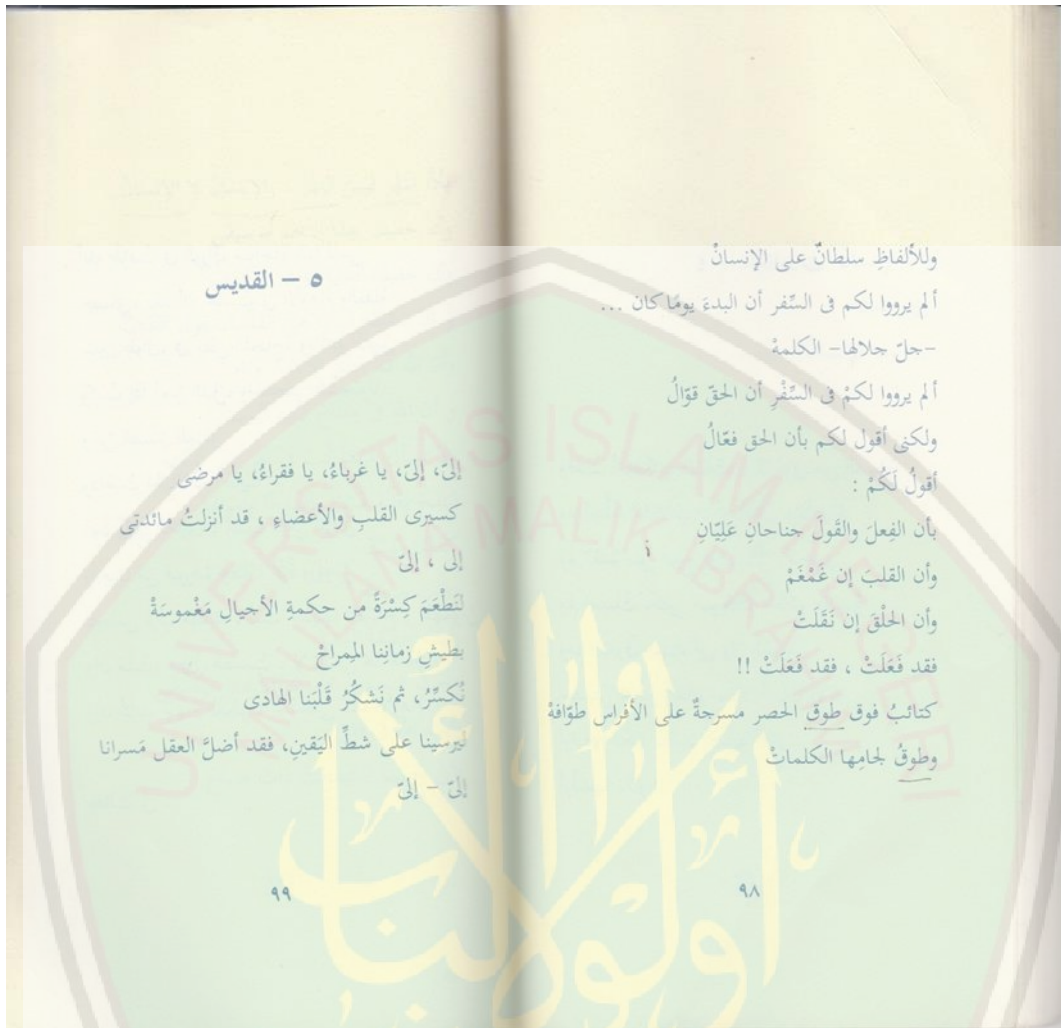 وللألفاظِ سلطانٌ على الإنسانْ
ألم يرووا لكم فى السِّفر أن البدءَ يومًا كان ...
-جلّ جلالها- الكلمةْ
ألم يرووا لكمْ فى السِّفْرِ أن الحقّ قوّالُ
ولكنى أقول لكم بأن الحق فعّالُ
أقولُ لَكُمْ :
بأن الفِعلَ والقَولَ جناحانِ عَلِيّانِ
وأن القلبَ إن غَمْغَمْ
وأن الحلْقَ إن نَقَلَتْ
فقد فَعَلَتْ ، فقد فَعَلَتْ !!
كتائبُ فوق طوق الحصر مسرجةٌ على الأفراس طوّافةْ
وطوقُ لجامِها الكلماتْ
٩٨
٥ – القديس
إلىّ، إلىّ، يا غرباءُ، يا فقراءُ، يا مرضى
كسيرى القلبِ والأعضاءِ ، قد أنزلتُ مائدتى
إلى ، إلىّ
لنَطْعَمَ كِسْرَةً من حكمةِ الأجيالِ مَغْموسَةْ
بطيشِ زمانِنا المِمراحْ
نُكسِّرُ، ثم نَشكُرُ قَلْبَنا الهادى
ليرسينا على شطِّ اليَقينِ، فقد أضلَّ العقل مَسرانا
إلىّ – إلىّ
٩٩
UNIVERSITAS ISLAM NEGERI
MAULANA MALIK IBRAHIM